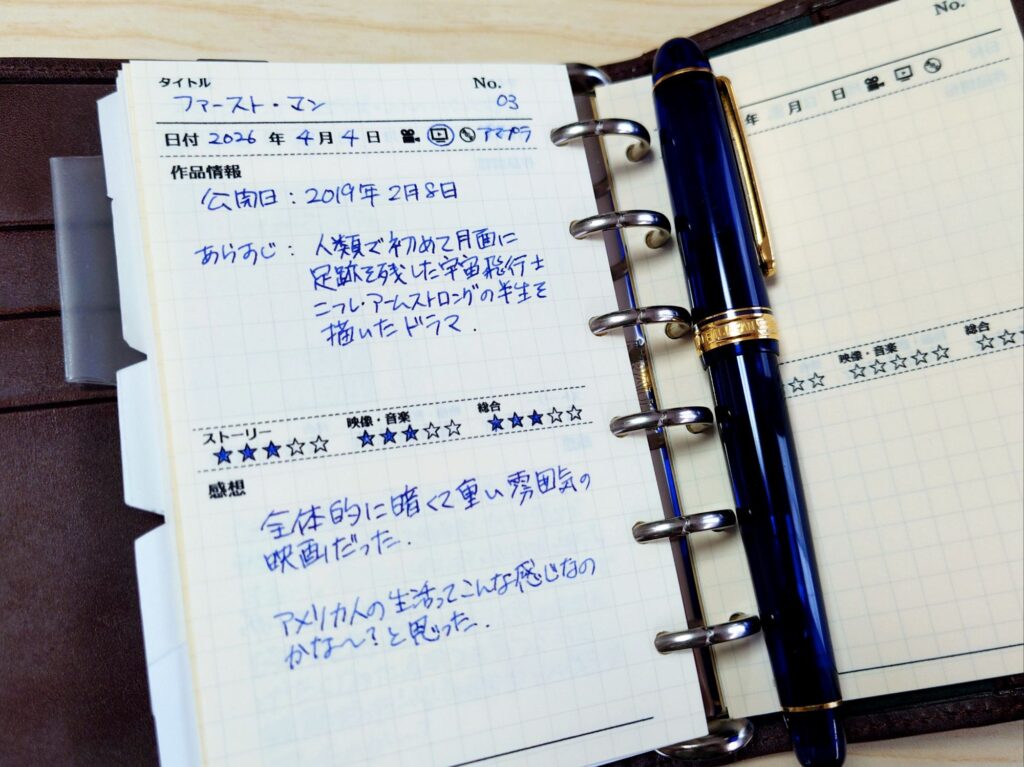 タイトル
No.
ファースト・マン
03
日付 2026 年 4 月 4 日 アマプラ
作品情報
公開日：2019年2月8日
あらすじ：人類で初めて月面に
足跡を残した宇宙飛行士
ニール・アームストロングの半生を
描いたドラマ.
ストーリー ★★★☆☆
映像・音楽 ★★★☆☆
総合 ★★★☆☆
感想
全体的に暗くて重い雰囲気の
映画だった.
アメリカ人の生活ってこんな感じなの
かな〜？と思った.
No.
年 月 日
☆☆
映像・音楽 ☆☆☆☆☆
総合 ☆☆☆